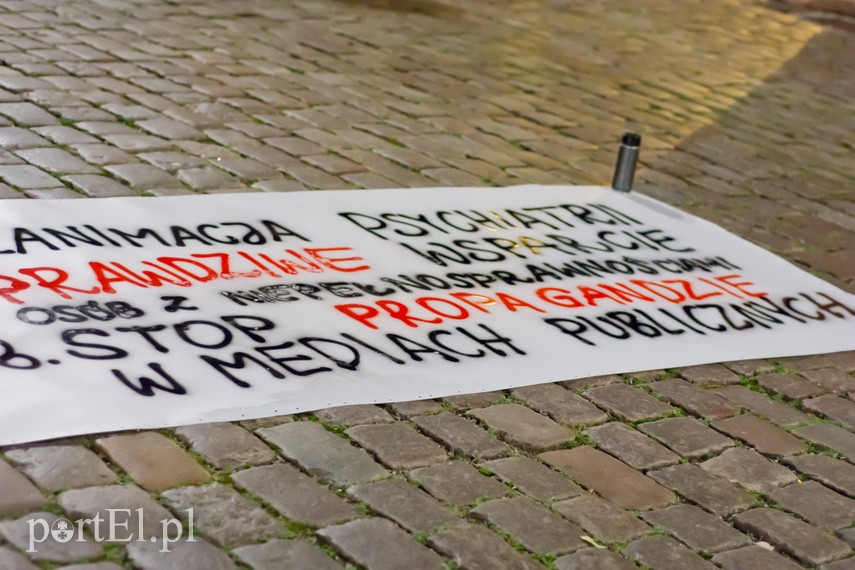 PSYCHIATRII
PRAWDZIWE WSPARCIE
OSÓB Z NIEPEŁNOSPRAWNOŚCIAMI
8. STOP PROPAGANDZIE
W MEDIACH PUBLICZNYCH
portEl.pl